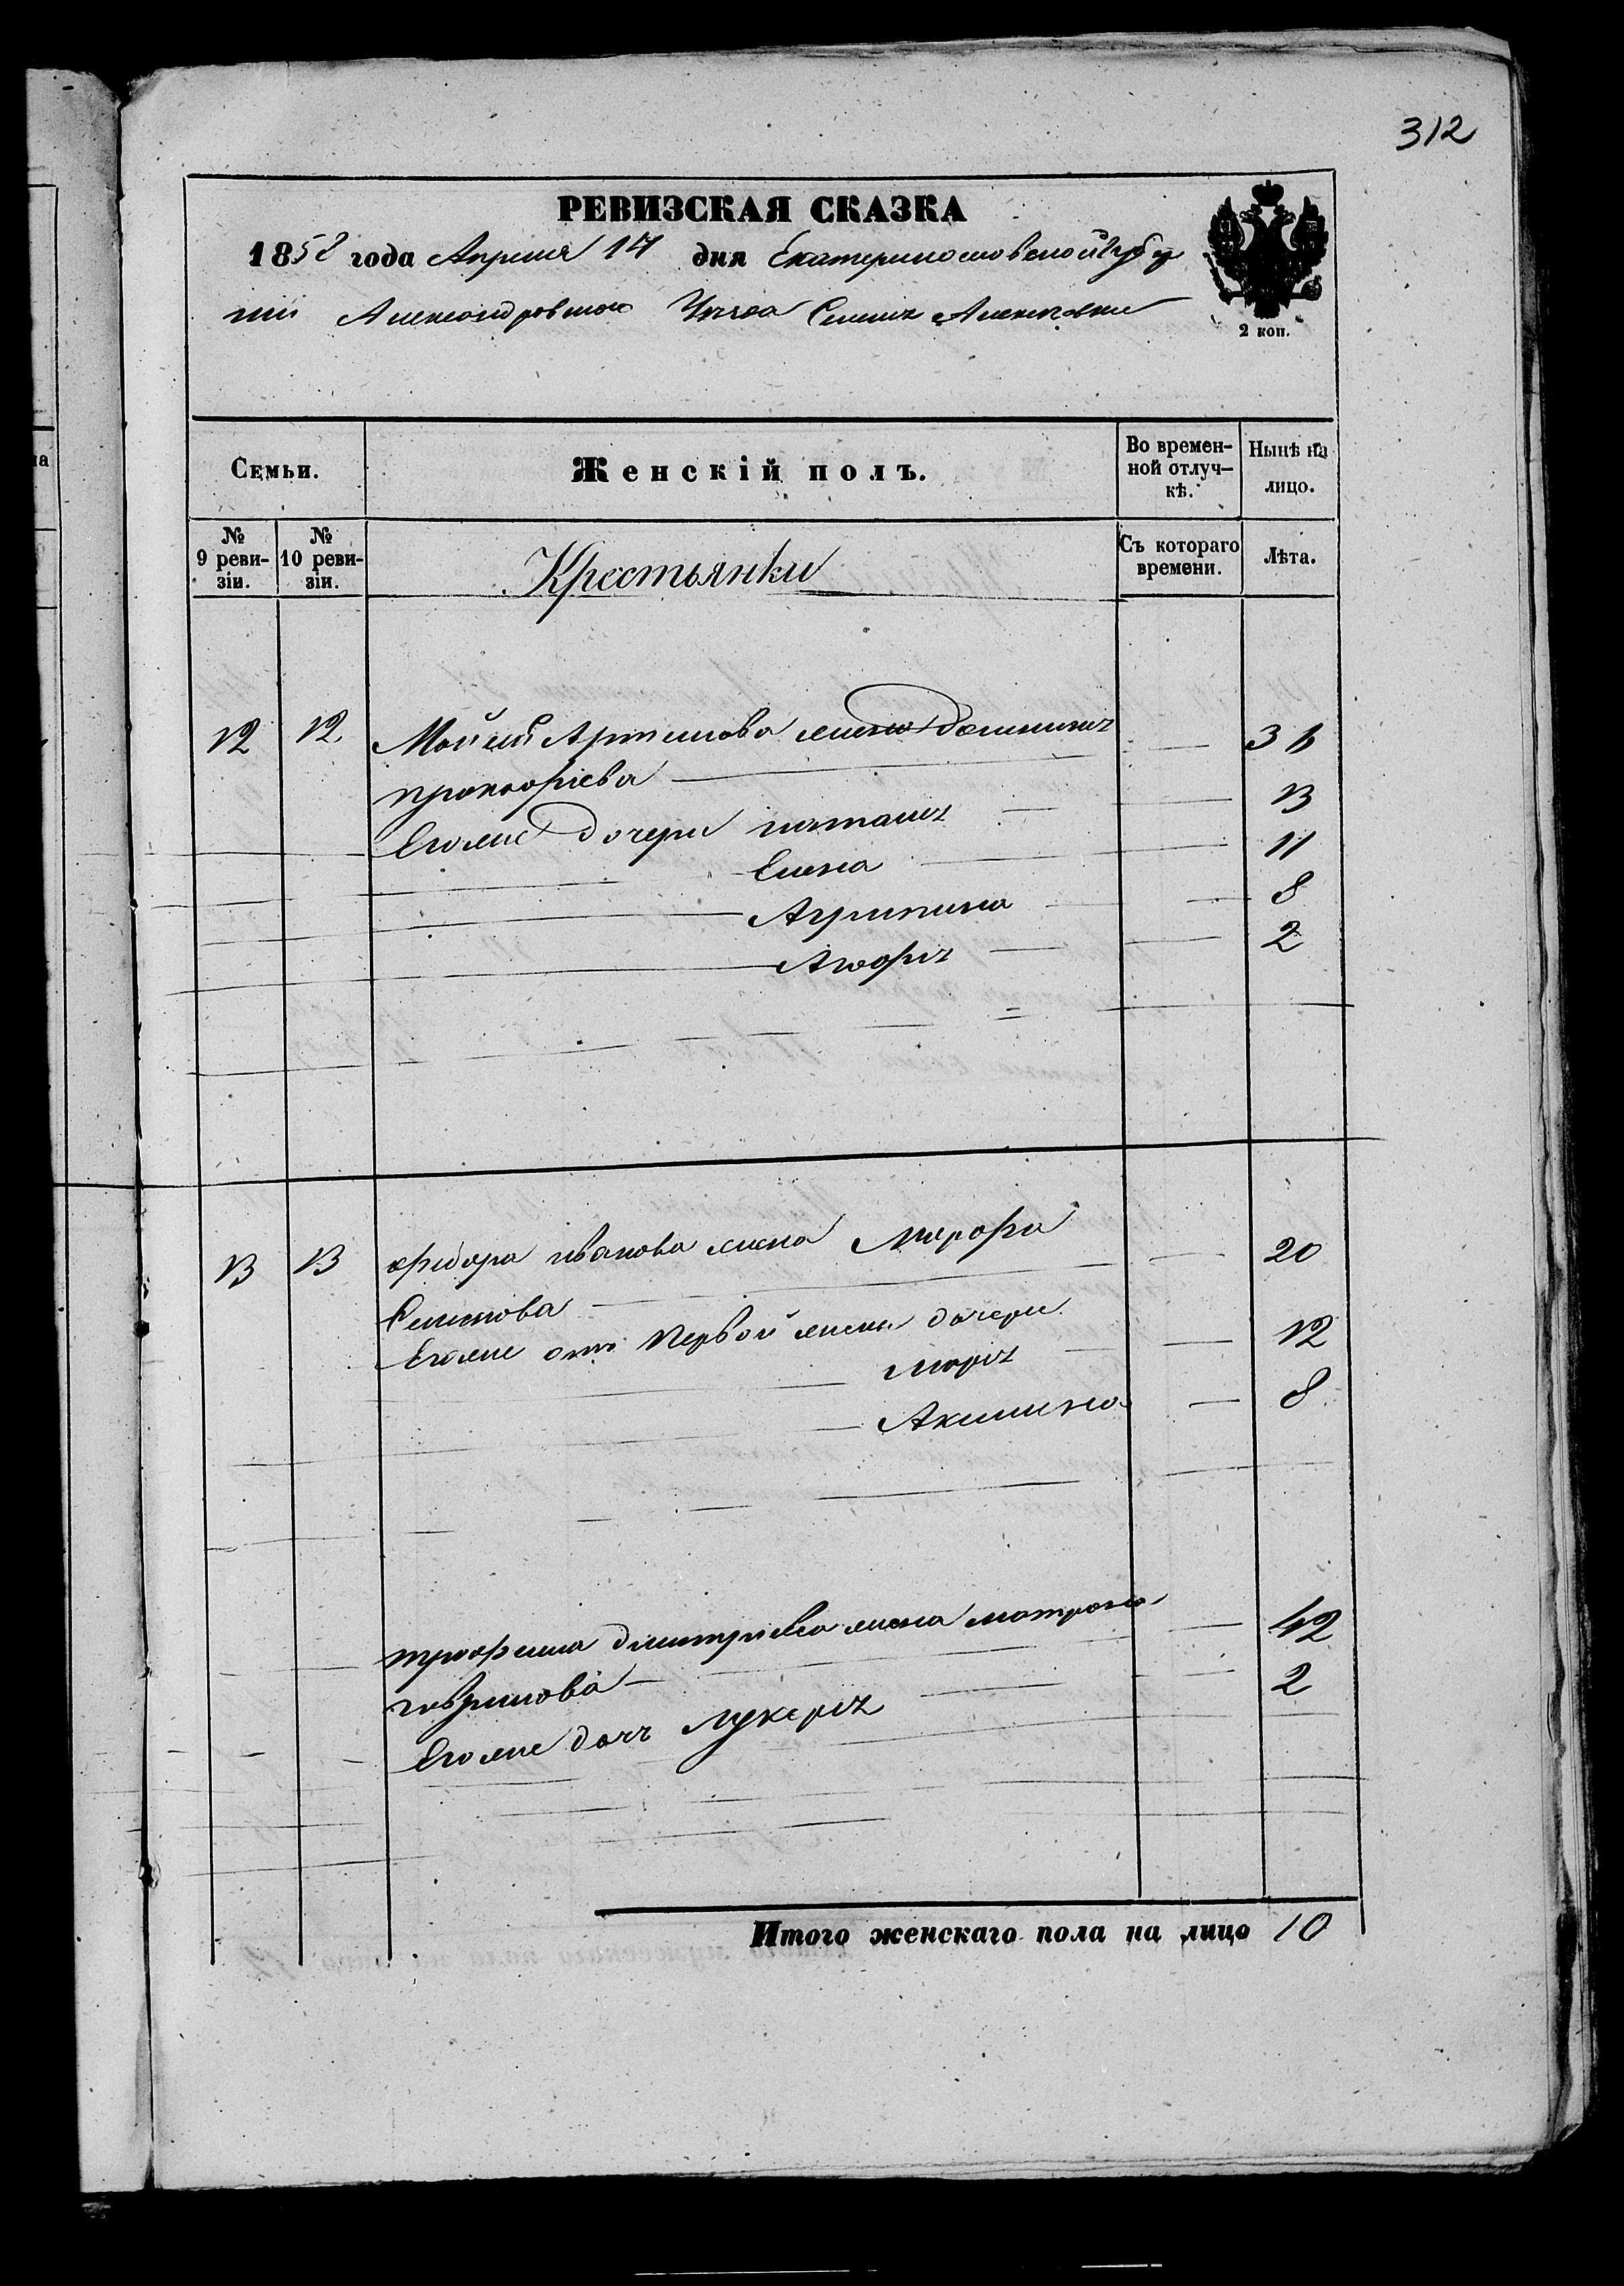 312
РЕВИЗСКАЯ СКАЗКА
1858 года Апреля 17 дня Екатеринославской Губер
нии Александровскаго Уезда Селенія Алексеевки
2 коп.
Семьи.
Женскій полъ.
Во времен-
ной отлуч-
кѣ.
Нынѣ на
лицо.
№
9 реви-
зіи.
№
10 реви-
зіи.
Крестьянки
Съ котораго
времени.
Лѣта.
12 12 Мойсія Артемова жена
Прокофіева 36
Егоже дочери Наталія 13
Елена 11
Агрипина 8
Агафія 2
13 13 Фйодора Иванова жена Марфа
Семенова 20
Егоже отъ Первой жены дочери
Марія 12
Акилина 8
Трофима Дмитріева жена Матрона 42
Гаврилова
Егоже дочь Лукерія 2
Итого женскаго пола на лицо 10